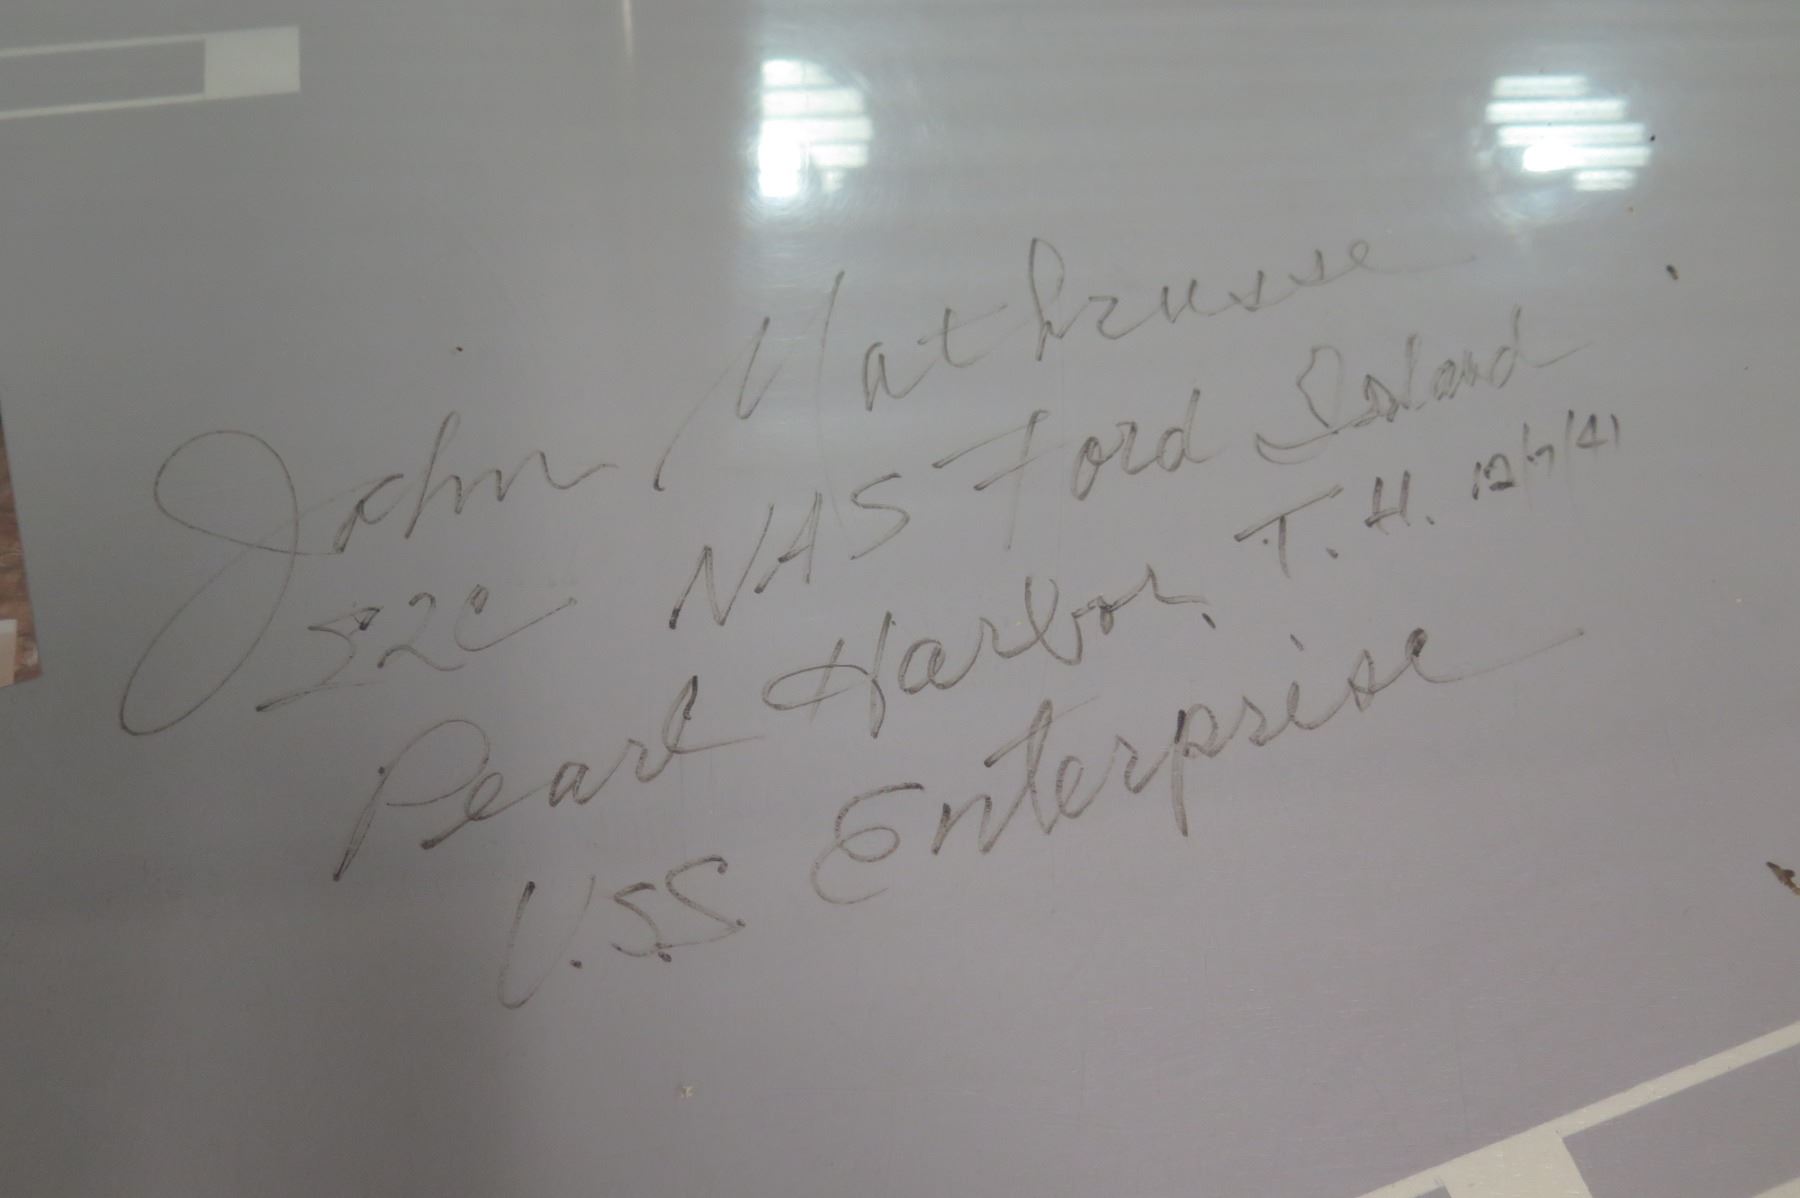 John Mathrusse
S2c NAS Ford Island
Pearl Harbor, T.H. 12/7/41
U.S.S. Enterprise